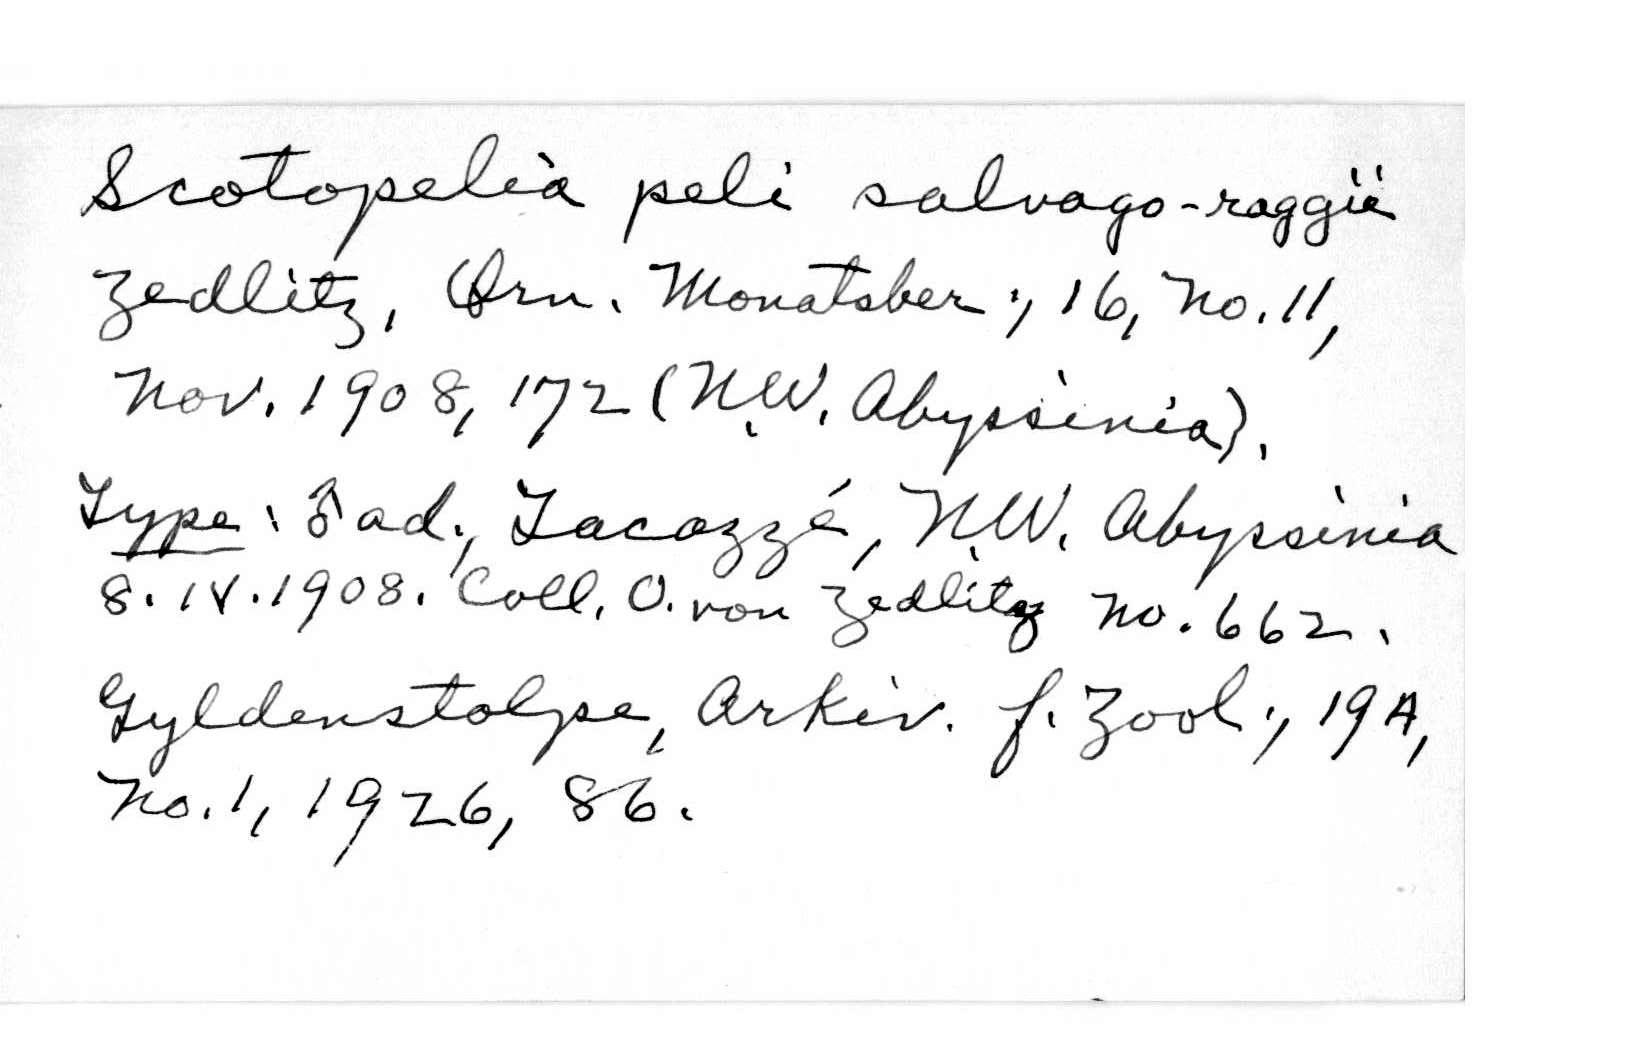 Scotopelia peli salvago-raggii
Zedlitz, Orn. Monatsber., 16, No. 11,
Nov. 1908, 172 (N.W. Abyssinia).
Type: ♂ ad., Tacazzé, N.W. Abyssinia
8.IV.1908. Coll. O. von Zedlitz No. 662.
Gyldenstolpe, Arkiv. f. Zool., 19A,
No. 1, 1926, 86.